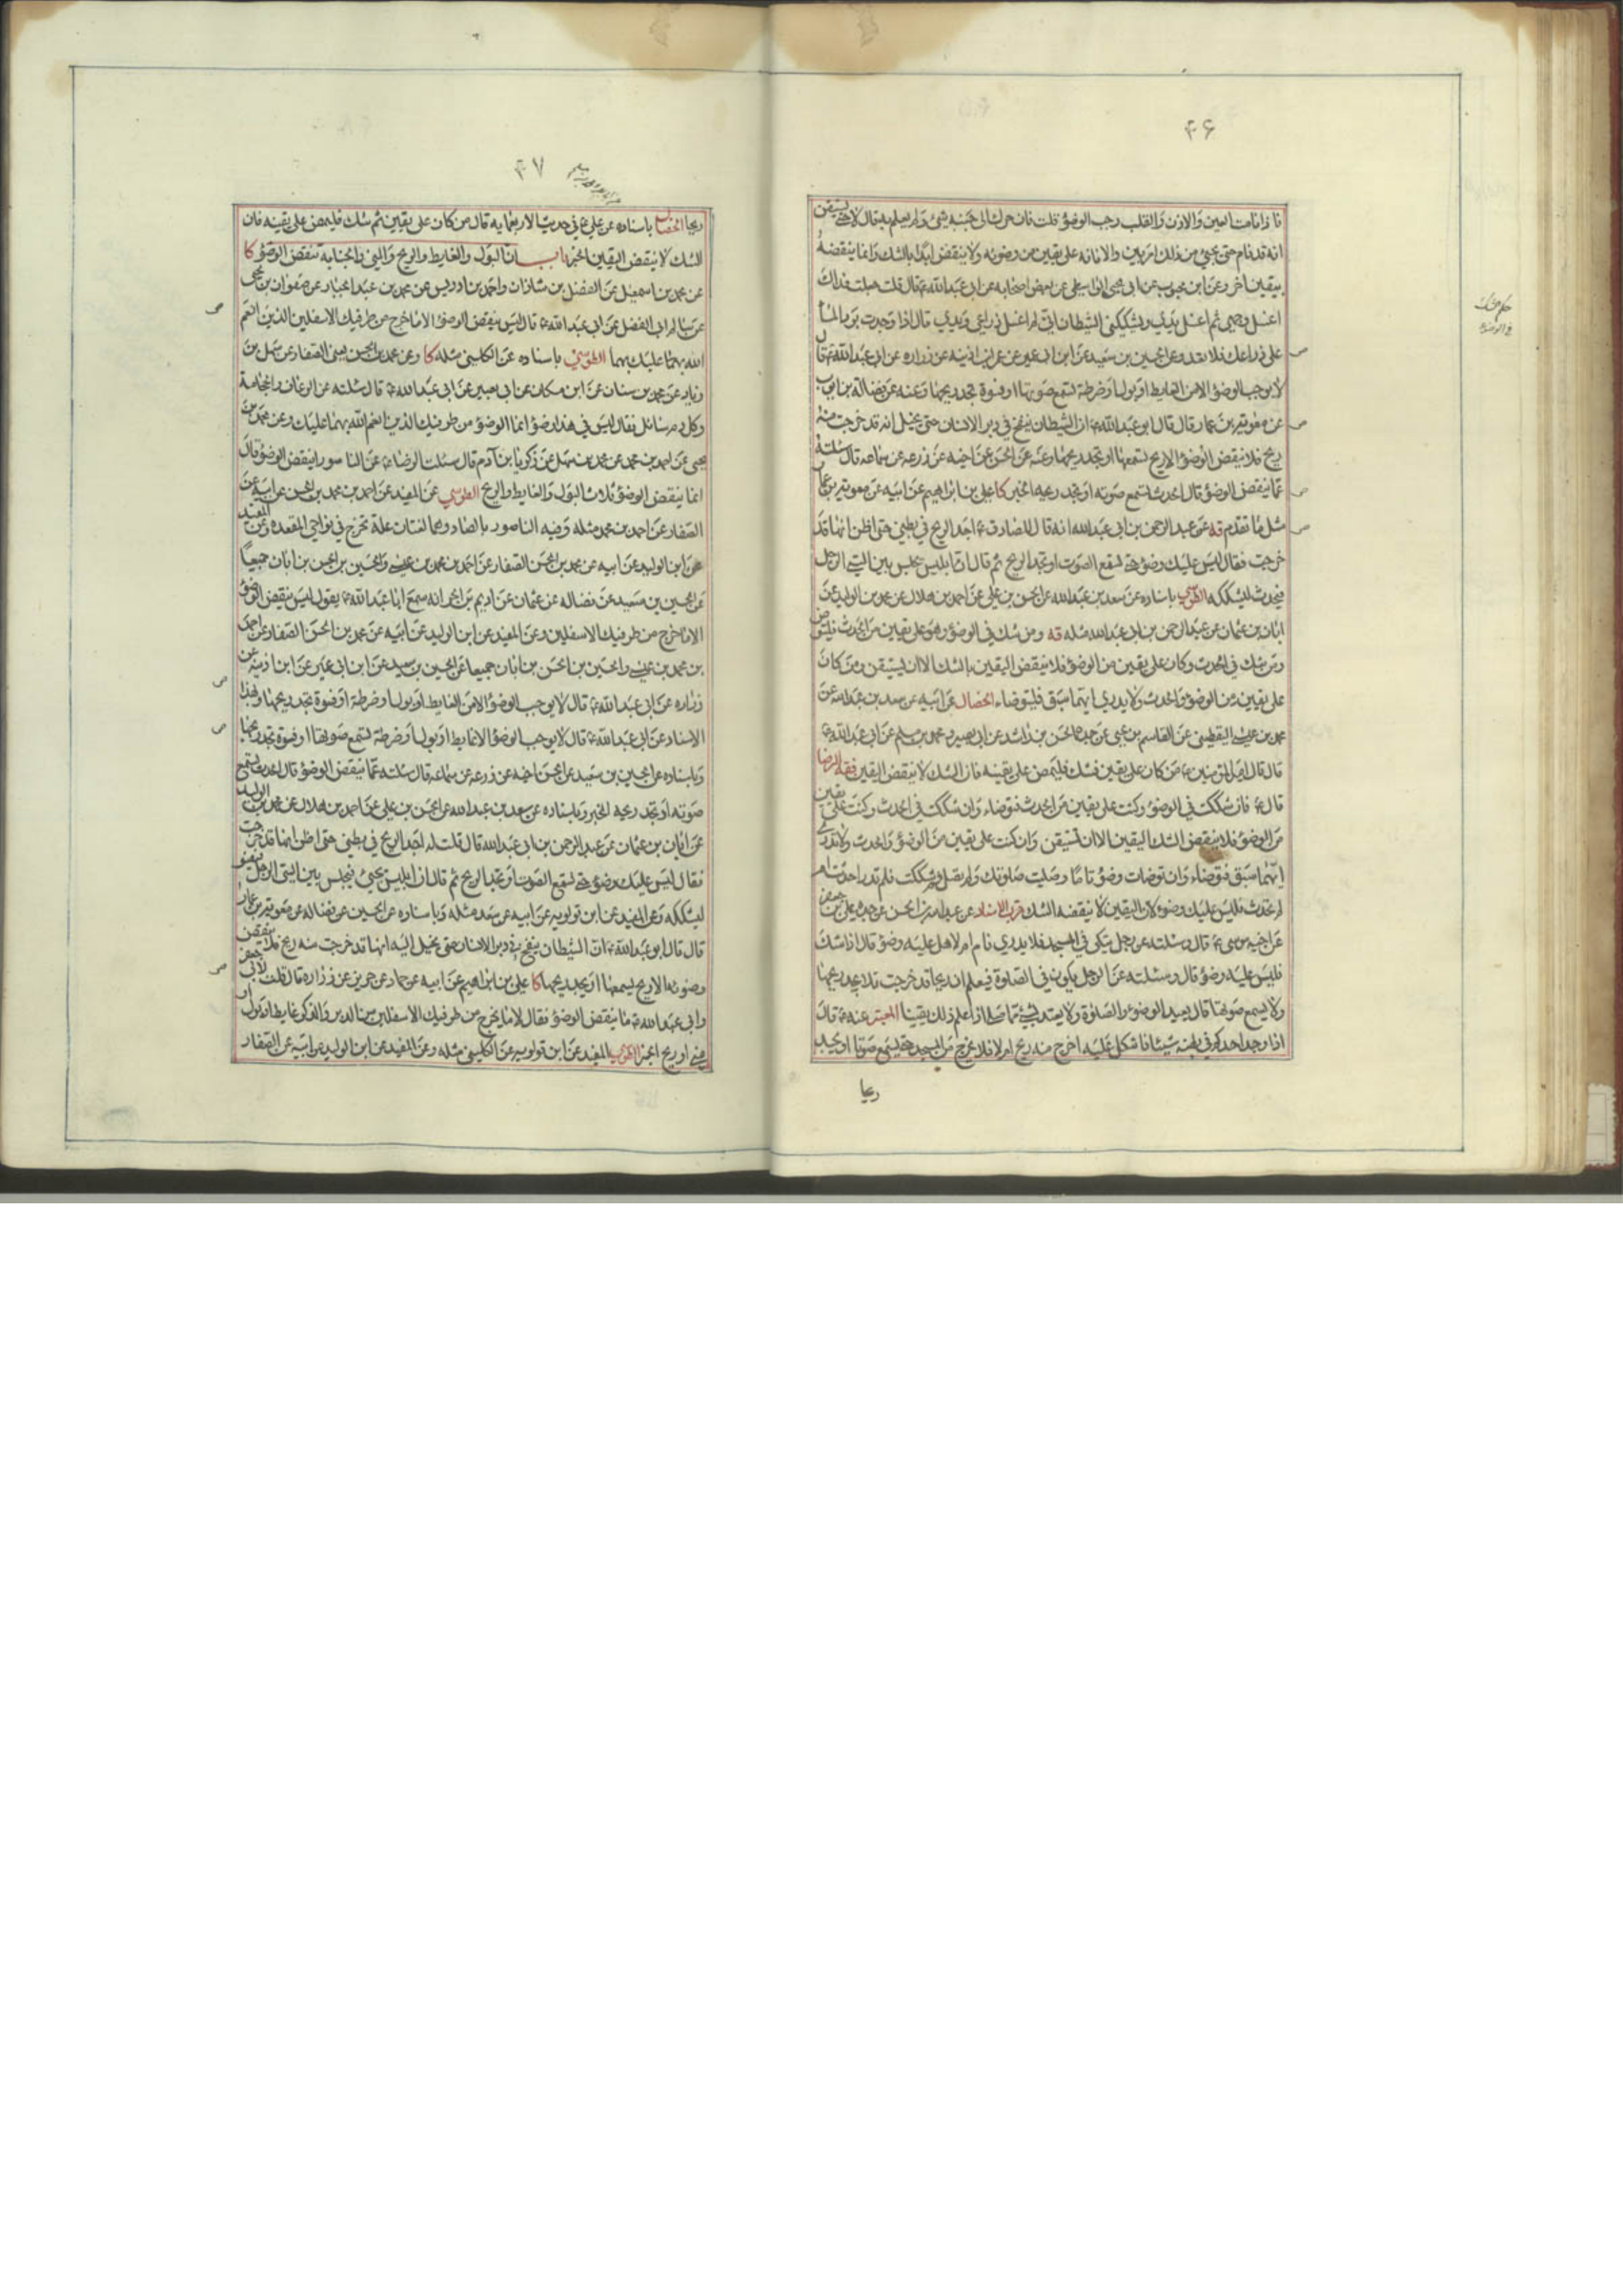 ۴۶
فاذا نامت العين والاذن والقلب وجب الوضوء قلت فان حرك الى جنبه شئ ولم يعلم به قال لا حتى يستيقن
انه قد نام حتى يجئ من ذلك امر بين والا فانه على يقين من وضوئه ولا ينقض ابدا بالشك وانما ينقضه
بيقين اخر وعن ابن محبوب عن ابى يحيى الواسطى عن بعض اصحابه عن ابى عبد الله ع قال قلت جعلت فداك
اغسل وجهى ثم اغسل يدى ويشككنى الشيطان انى لم اغسل ذراعى ويدى قال اذا وجدت برد الماء
على ذراعك فلا تعد وعن الحسين بن سعيد عن ابن ابى عمير عن عمر بن اذينه عن زراره عن ابى عبد الله ع قال
لا يوجب الوضوء الا من الغايط او بول او ضرطة تسمع صوتها او فسوة تجد ريحها وعنه عن فضالة بن ايوب
عن معوية بن عمار قال قال ابو عبد الله ع ان الشيطان ينفخ فى دبر الانسان حتى يخيل انه قد خرجت منه
ريح فلا ينقض الوضوء الا ريح تسمعها او تجد ريحها وعنه عن الحسن عن اخيه عن زرعه عن سماعه قال سئلته
عما ينقض الوضوء قال الحدث تسمع صوته او تجد ريحه الخبر كا على بن ابراهيم عن ابيه عن معوية بن عمار
مثل ما تقدم قه عن عبد الرحمن بن ابى عبد الله انه قال للصادق ع اجد الريح فى بطنى حتى اظن انها قد
خرجت فقال ليس عليك وضوء حتى تسمع الصوت او تجد الريح ثم قال ان ابليس يجلس بين اليتى الرجل
فيحدث ليشككه الطوسى باسناده عن سعد بن عبد الله عن الحسن بن على عن احمد بن هلال عن محمد بن الوليد عن
ابان بن عثمان عن عبد الرحمن بن ابى عبد الله مثله قه ومن شك فى الوضوء وهو على يقين من الحدث فليتوض
ومن شك فى الحدث وكان على يقين من الوضوء فلا ينقض اليقين بالشك الا ان يستيقن ومن كان
على يقين من الوضوء والحدث ولا يدرى ايهما سبق فليتوضاء الخصال عن ابيه عن سعد بن عبد الله عن
محمد بن عيسى اليقطينى عن القاسم بن يحيى عن جده الحسن بن راشد عن ابى بصير ومحمد بن مسلم عن ابى عبد الله ع
قال قال امير المؤمنين ع من كان على يقين فشك فليمض على يقينه فان الشك لا ينقض اليقين فقه الرضا
قال ع فان شككت فى الوضوء وكنت على يقين من الحدث فتوضاء وان شككت فى الحدث وكنت على يقين
من الوضوء فلا ينقض الشك اليقين الا ان تستيقن وان كنت على يقين من الوضوء والحدث ولا تدرى
ايهما سبق فتوضاء وان توضات وضوء تاما وصليت صلوتك ولم تصل ثم شككت فلم تدر احدثت ام
لم تحدث فليس عليك وضوء لان اليقين لا ينقضه الشك قرب الاسناد عن عبد الله بن الحسن عن جده على بن جعفر
عن اخيه موسى ع قال وسئلته عن رجل يتكى فى المسجد فلا يدرى نام ام لا هل عليه وضوء قال اذا شك
فليس عليه وضوء قال وسئلته عن الرجل يكون فى الصلوة فيعلم ان ريحا قد خرجت فلا يجد ريحها
ولا يسمع صوتها قال يعيد الوضوء والصلوة ولا يعتد بشئ مما صلى اذا علم ذلك يقينا المعتبر عنه ع قال
اذا وجد احدكم فى بطنه شيئا فاشكل عليه اخرج منه ريح ام لا فلا يخرج من المسجد حتى يسمع صوتا او يجد
ريحا
۴۷
ريحا الخصال باسناده عن على ع فى حديث الاربعمايه قال من كان على يقين ثم شك فليمض على يقينه فان
الشك لا ينقض اليقين الخبر باب ان البول والغايط والريح والمنى والجنابة تنقض الوضوء كا
عن محمد بن اسمعيل عن الفضل بن شاذان واحمد بن ادريس عن محمد بن عبد الجبار عن صفوان بن يحيى
عن سالم ابى الفضل عن ابى عبد الله ع قال ليس ينقض الوضوء الا ما خرج من طرفيك الاسفلين الذين انعم
الله بهما عليك بهما الطوسى باسناده عن الكلينى مثله كا وعن محمد بن الحسن يعنى الصفار عن سهل بن
زياد عن محمد بن سنان عن ابن مسكان عن ابى بصير عن ابى عبد الله ع قال سئلته عن الرعاف والحجامة
وكل دم سائل فقال ليس فى هذا وضوء انما الوضوء من طرفيك الذين انعم الله بهما عليك وعن محمد بن
يحيى عن احمد بن محمد عن محمد بن سهل عن زكريا بن آدم قال سئلت الرضا ع عن الناسور اينقض الوضوء قال
انما ينقض الوضوء ثلاث البول والغايط والريح الطوسى عن المفيد عن احمد بن محمد بن الحسن عن ابيه عن
الصفار عن احمد بن محمد مثله وفيه الناصور بالصاد وهما لغتان علة تخرج فى نواحى المقعده وعن المفيد
عن ابن الوليد عن ابيه عن محمد بن الحسن الصفار عن احمد بن محمد بن عيسى والحسين بن الحسن بن ابان جميعا
عن الحسين بن سعيد عن فضاله عن عثمان عن اديم بن الحر انه سمع ابا عبد الله ع يقول ليس ينقض الوضوء
الا ما خرج من طرفيك الاسفلين وعن المفيد عن ابن الوليد عن ابيه عن محمد بن الحسن الصفار عن احمد
بن محمد بن عيسى والحسين بن الحسن بن ابان جميعا عن الحسين بن سعيد عن ابن ابى عمير عن ابن اذينه عن
زراره عن ابى عبد الله ع قال لا يوجب الوضوء الا من الغايط او بول او ضرطة او فسوة تجد ريحها وبهذا
الاسناد عن ابى عبد الله ع قال لا يوجب الوضوء الا غايط او بول او ضرطة تسمع صوتها او فسوة تجد ريحها
وباسناده عن الحسين بن سعيد عن الحسن اخيه عن زرعه عن سماعه قال سئلته عما ينقض الوضوء قال الحدث تسمع
صوته او تجد ريحه الخبر وباسناده عن سعد بن عبد الله عن الحسن بن على عن احمد بن هلال عن محمد بن الوليد
عن ابان بن عثمان عن عبد الرحمن بن ابى عبد الله قال قلت له اجد الريح فى بطنى حتى اظن انها قد خرجت
فقال ليس عليك وضوء حتى تسمع الصوت او تجد الريح ثم قال ان ابليس يجئ فيجلس بين اليتى الرجل فيفسو
ليشككه وعن المفيد عن ابن قولويه عن ابيه عن سعد مثله وباسناده عن الحسين عن فضاله عن معوية بن عمار
قال قال ابو عبد الله ع ان الشيطان ينفخ فى دبر الانسان حتى يخيل اليه انها قد خرجت منه ريح فلا ينقض
وضوئه الا ريح يسمعها او يجد ريحها كا على بن ابراهيم عن ابيه عن حماد عن حريز عن زراره قال قلت لابى جعفر
وابى عبد الله ع ما ينقض الوضوء فقالا ما يخرج من طرفيك الاسفلين من الدبر والذكر غايط او بول او
منى او ريح الخبر الطوسى المفيد عن ابن قولويه عن الكلينى مثله وعن المفيد عن ابن الوليد عن ابيه عن الصفار